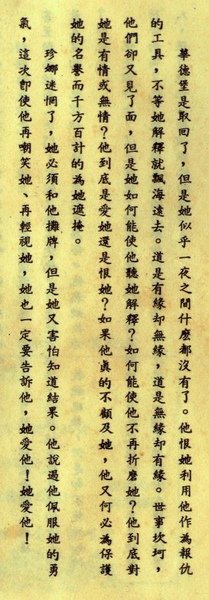 華德堡是取回了,但是她似乎一夜之間什麼都沒有了。他恨她利用他作為報仇
的工具,不等她解釋就飄海遠去。道是有緣却無緣,道是無緣却有緣。世事坎坷,
他們却又見了面,但是她如何能使他聽她解釋?如何能使他不再折磨她?他到底對
她是有情或無情?他到底是愛她還是恨她?如果他真的不顧及她,他又何必為保護
她的名譽而千方百計的為她遮掩。
珍娜迷惘了,她必須和他攤牌,但是她又害怕知道結果。他說過他佩服她的勇
氣,這次即使他再嘲笑她、再輕視她,她也一定要告訴他,她愛他!她愛他!